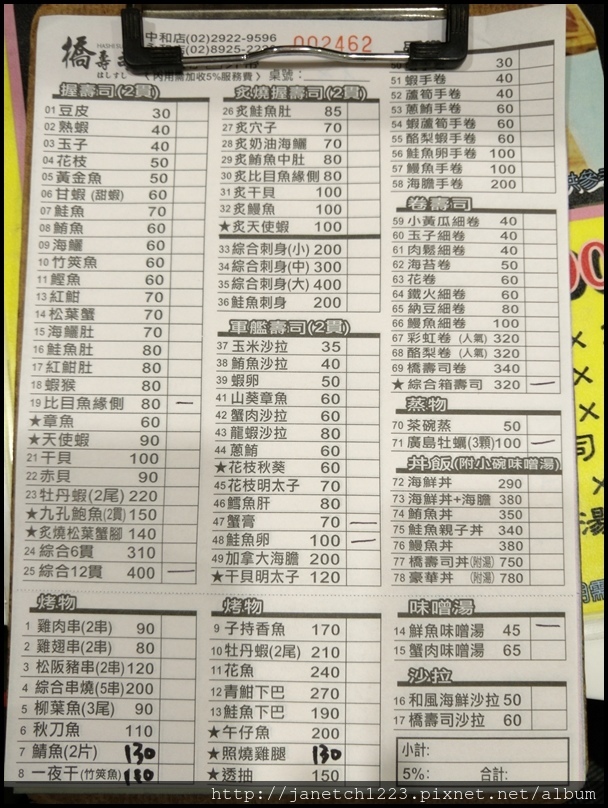 中和店(02)2922-9596
(02)8925-22
002462
橋壽
はしすし
(內用需加收5%服務費) 桌號:
握壽司(2貫)
01 豆皮 30
02 熟蝦 40
03 玉子 40
04 花枝 50
05 黃金魚 50
06 甘蝦 (甜蝦) 60
07 鮭魚 70
08 鮪魚 60
09 海鱺 60
10 竹筴魚 60
11 鰹魚 60
13 紅魽 70
14 松葉蟹 70
15 海鱺肚 70
16 鮭魚肚 80
17 紅魽肚 80
18 蝦猴 80
19 比目魚緣側 80 —
★章魚 60
★天使蝦 90
21 干貝 100
22 赤貝 90
23 牡丹蝦(2尾) 220
★九孔鮑魚(2貫) 150
★炙燒松葉蟹腳 140
24 綜合6貫 310
25 綜合12貫 400 —
炙燒握壽司(2貫)
26 炙鮭魚肚 85
27 炙穴子 70
28 炙奶油海鱺 70
29 炙鮪魚中肚 80
30 炙比目魚緣側 80
31 炙干貝 100
32 炙鰻魚 100
★炙天使蝦 100
33 綜合刺身(小) 200
34 綜合刺身(中) 300
35 綜合刺身(大) 400
36 鮭魚刺身 200
軍艦壽司(2貫)
37 玉米沙拉 35
38 鮪魚沙拉 40
39 蝦卵 50
41 山葵章魚 60
42 蟹肉沙拉 60
43 龍蝦沙拉 80
44 蔥鮪 60
★花枝秋葵 60
45 花枝明太子 70
46 鱈魚肝 80
47 蟹膏 70 —
48 鮭魚卵 100 —
49 加拿大海膽 200
★干貝明太子 120
30
51 蝦手卷 40
52 蘆筍手卷 40
53 蔥鮪手卷 60
54 蝦蘆筍手卷 60
55 酪梨蝦手卷 60
56 鮭魚卵手卷 100
57 鰻魚手卷 100
58 海膽手卷 200
卷壽司
59 小黃瓜細卷 40
60 玉子細卷 40
61 肉鬆細卷 40
62 海苔卷 50
63 花卷 60
64 鐵火細卷 60
65 納豆細卷 80
66 鰻魚細卷 100
67 彩虹卷 (人氣) 320
68 酪梨卷 (人氣) 320
69 橋壽司卷 340
★綜合箱壽司 320 —
蒸物
70 茶碗蒸 50
71 廣島牡蠣(3顆) 100 —
丼飯(附小碗味噌湯)
72 海鮮丼 290
73 海鮮丼+海膽 380
74 鮪魚丼 350
75 鮭魚親子丼 340
76 鰻魚丼 380
77 橋壽司丼(附湯) 750
78 豪華丼 (附湯) 780
烤物
1 雞肉串(2串) 90
2 雞翅串(2串) 80
3 松阪豬串(2串) 120
4 綜合串燒(5串) 200
5 柳葉魚(3尾) 90
6 秋刀魚 110
7 鯖魚(2片) 130
8 一夜干(竹筴魚)
烤物
9 子持香魚 170
10 牡丹蝦(2尾) 210
11 花魚 240
12 青魽下巴 270
13 鮭魚下巴 190
★午仔魚 200
★照燒雞腿 130
★透抽 150
味噌湯
14 鮮魚味噌湯 45 —
15 蟹肉味噌湯 65
沙拉
16 和風海鮮沙拉 50
17 橋壽司沙拉 60
小計:
5%: 合計:
司
湯
http://janetch1223.pixnet.net/album